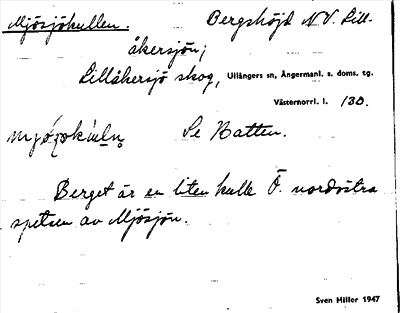 Mjösjökullen. Bergshöjd N.V. Lill-
åkersjön;
Lillåkersjö skog, Ullångers sn, Ångermanl. s. doms. tg.
Västernorrl. l. 130.
Se Batten.
Berget är en liten kulle Ö. nordöstra
spetsen av Mjösjön.
Sven Hiller 1947